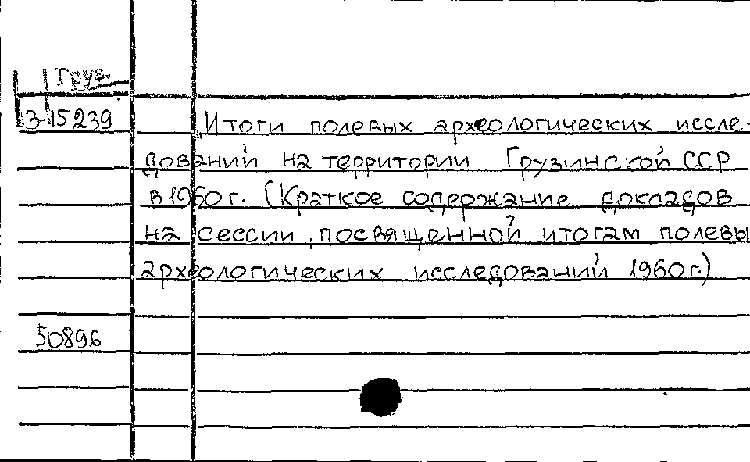 Груз.
3-15239
Итоги полевых археологических иссле-
дований на территории Грузинской ССР
в 1960 г. (Краткое содержание докладов
на сессии, посвященной итогам полевы
археологических исследований 1960 г.)
50896